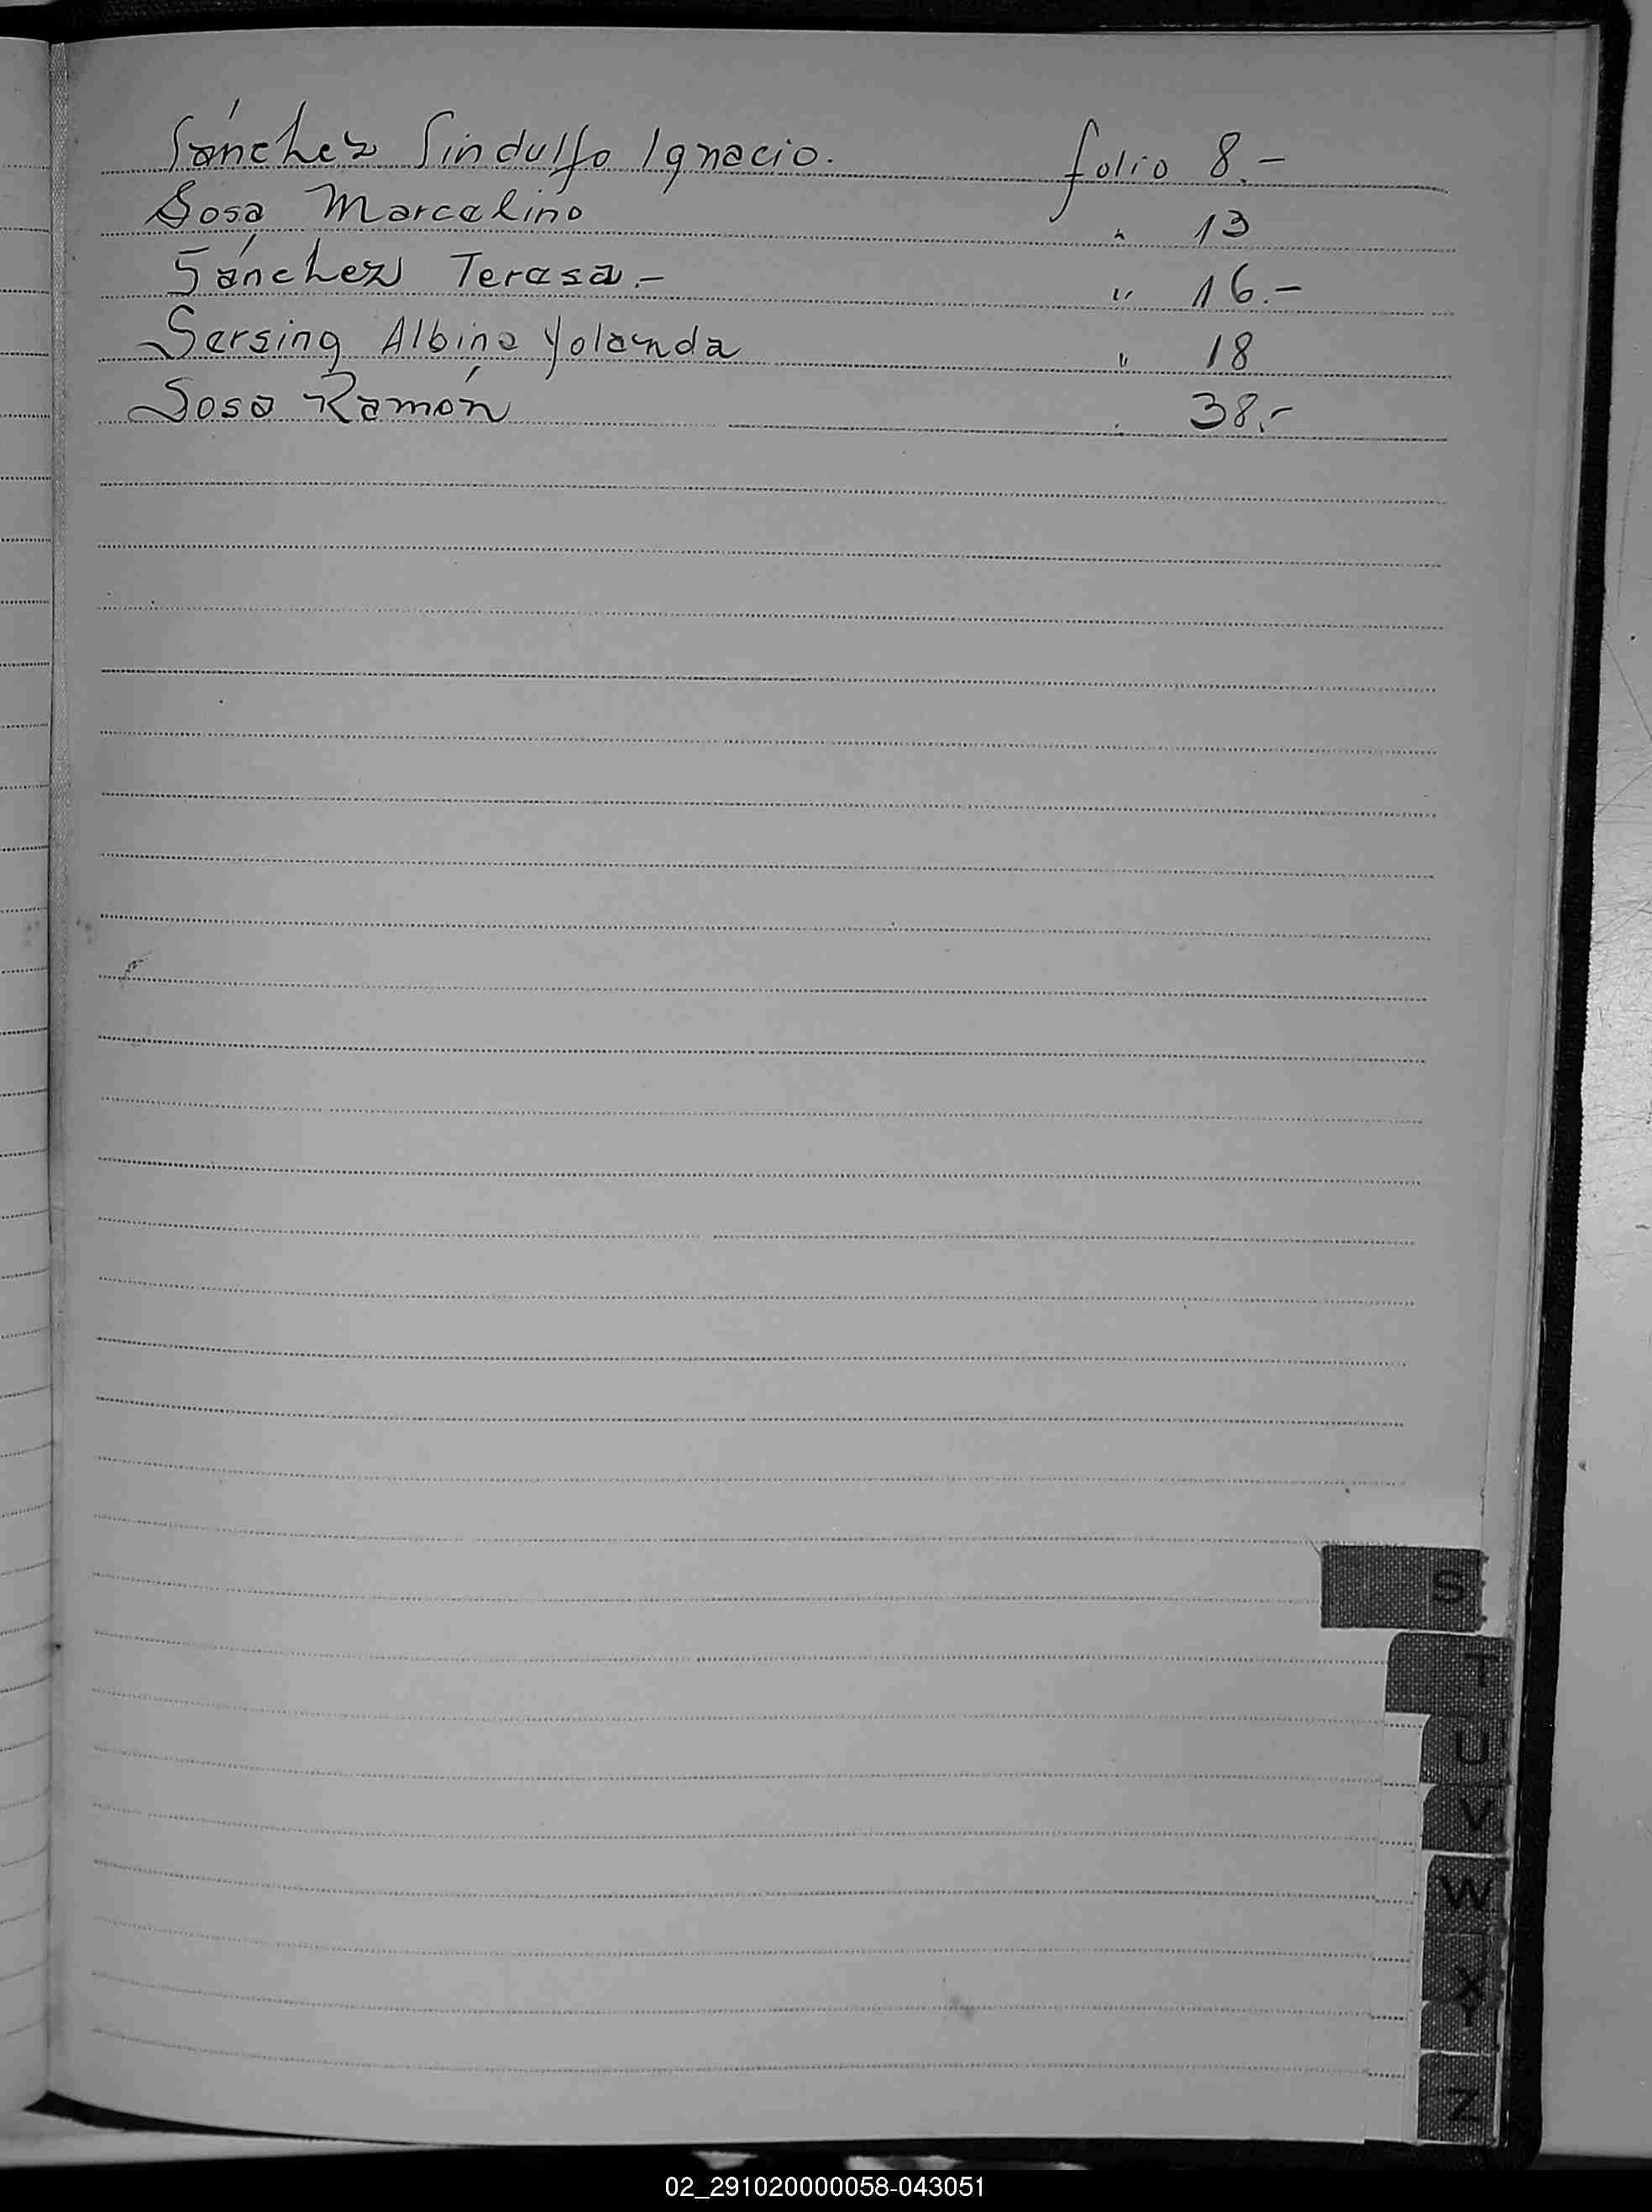 Sánchez Sindulfo Ignacio. folio 8.-
Sosa Marcelino " 13
Sánchez Teresa.- " 16.-
Sersing Albina Yolanda " 18
Sosa Ramón . 38.-
S
T
U
V
W
X
Y
Z
02_291020000058-043051